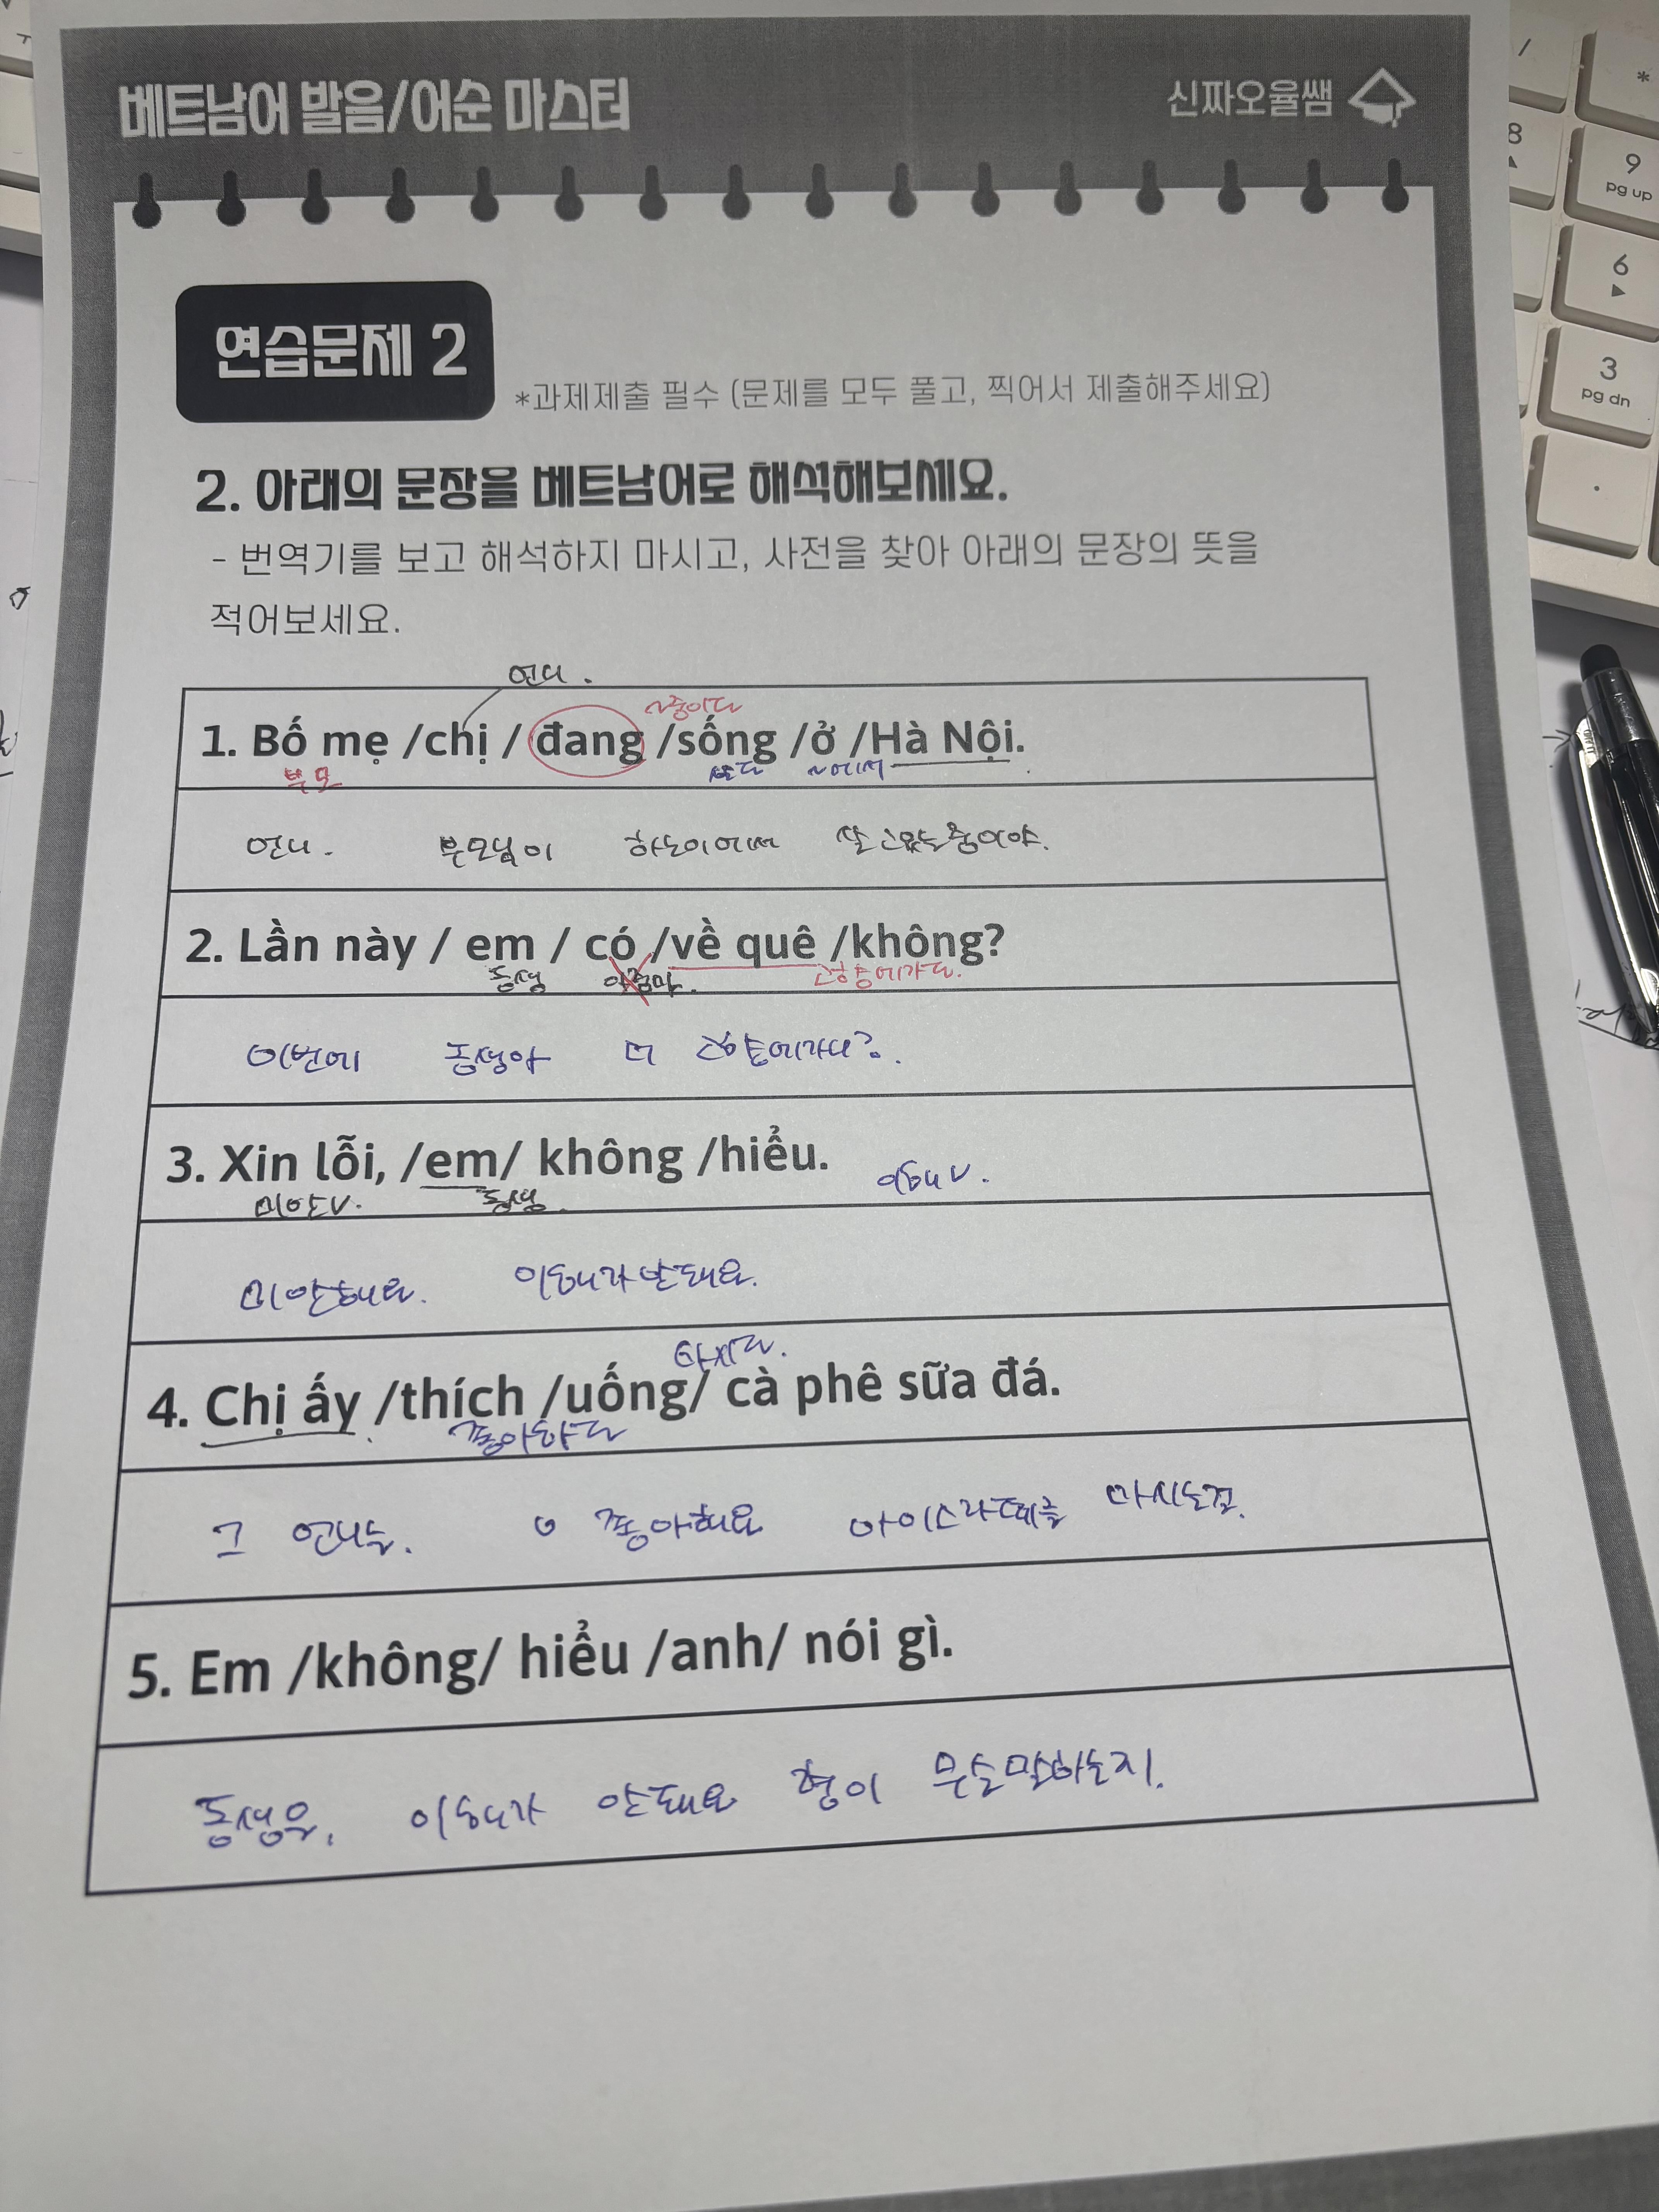 베트남어 발음/어순 마스터
신짜오율쌤
연습문제 2
*과제제출 필수 (문제를 모두 풀고, 찍어서 제출해주세요)
2. 아래의 문장을 베트남어로 해석해보세요.
- 번역기를 보고 해석하지 마시고, 사전을 찾아 아래의 문장의 뜻을
적어보세요.
언니.
~중이다
1. Bố mẹ /chị / đang /sống /ở /Hà Nội.
부모 살다 ~에서
언니. 부모님이 하노이에서 살고있는중이야.
2. Lần này / em / có /về quê /không?
동생 고향에가다.
이번에 동생아 너 고향에가니?
3. Xin lỗi, /em/ không /hiểu.
미안 V. 동생. 이해 V.
미안해요. 이해가안돼요.
마시다.
4. Chị ấy /thích /uống/ cà phê sữa đá.
좋아하다
그 언니는. 좋아해요 아이스라떼를 마시는걸.
5. Em /không/ hiểu /anh/ nói gì.
동생은, 이해가 안돼요 형이 무슨말하는지.
8
9
pg up
6
3
pg dn
.
/
*